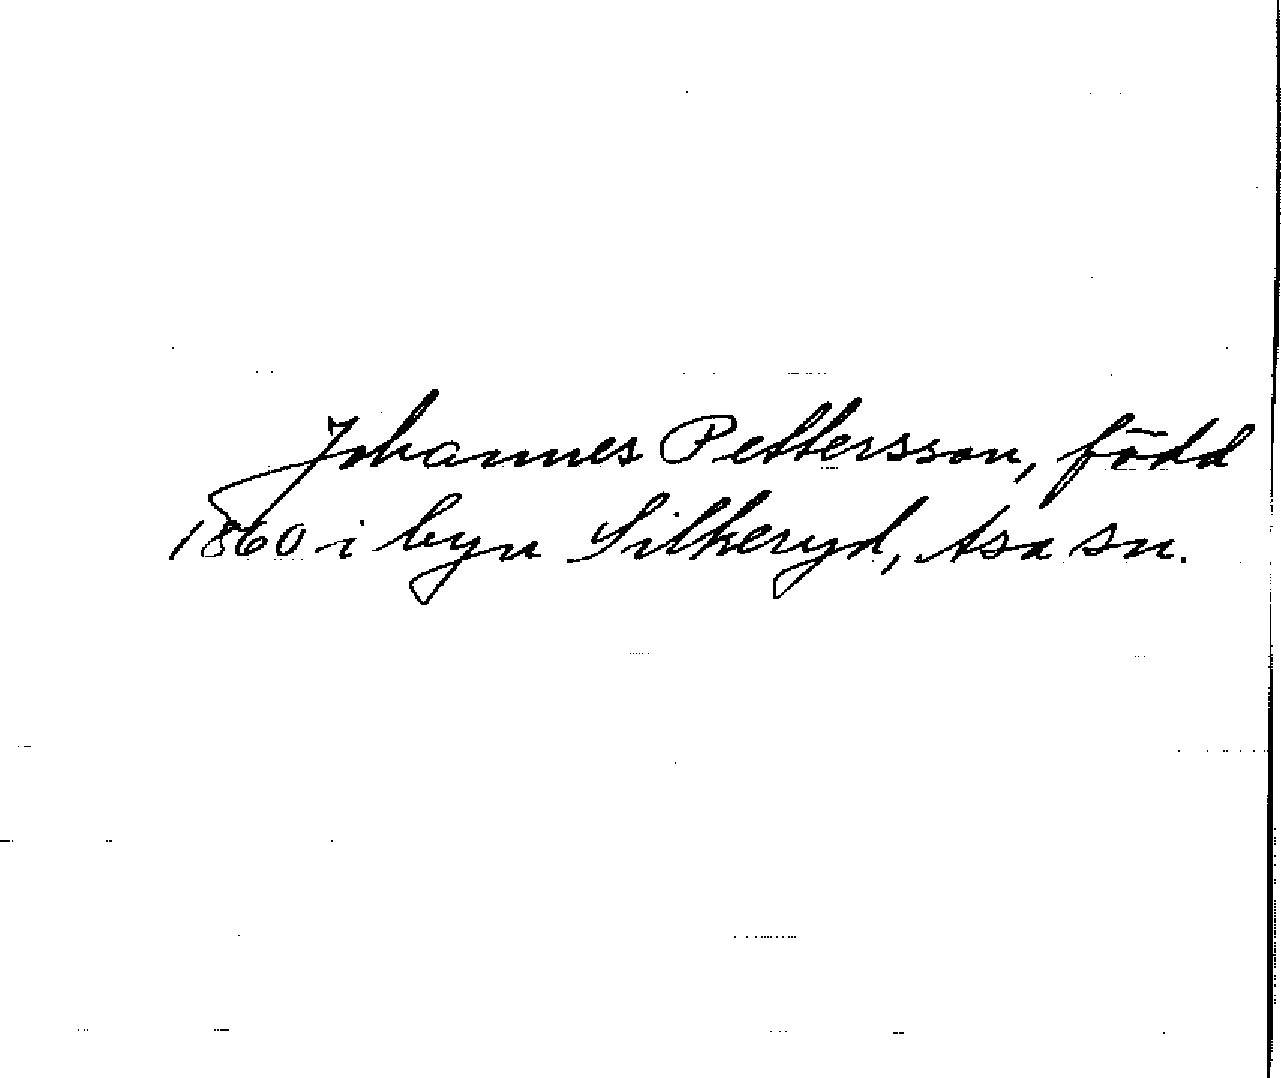 Johannes Pettersson, född
1860 i byn Silkeryd, Asa sn.